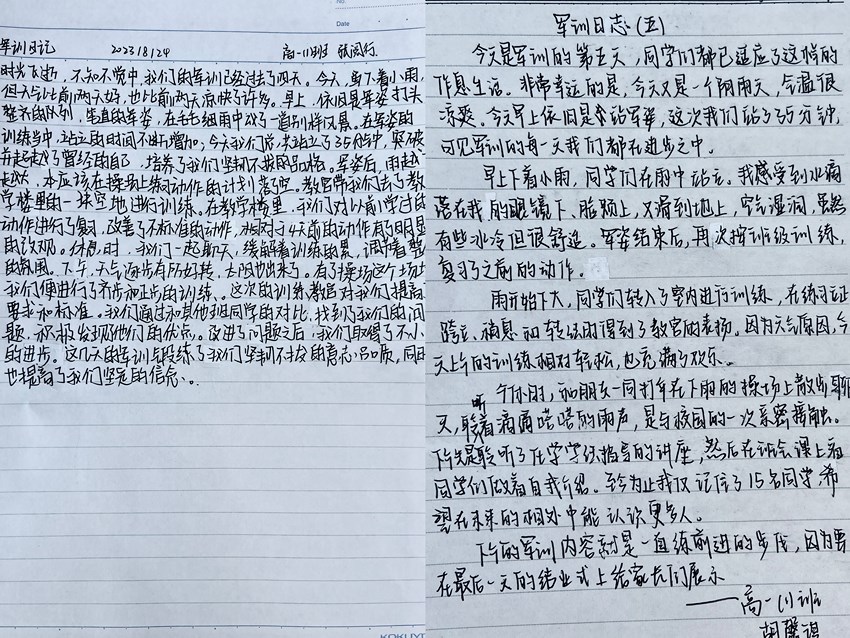 No.
Date
军训日记 2023/8/24 高一(1)班
时光飞逝，不知不觉中，我们的军训已经过去了四天。今天，虽下着小雨，
但天气比前两天好，也比前两天凉快了许多。早上，依旧是军姿打头
整齐的队列，笔直的军姿，在毛毛细雨中成了一道别样风景。在军姿的
训练当中，站立的时间不断增加；今天我们总共站立了35分钟，突破
并超越了曾经的自己，培养了我们坚韧不拔的品格。军姿后，雨越
越大，本应该在操场上练动作的计划落了空。教官带我们去了教
学楼里的一块空地进行训练。在教学楼里，我们对以前学过的
动作进行了复习，改善了不标准的动作，相对于4天前的动作有了明显
的改观。休息时，我们一起聊天，缓解着训练的累，调节着整
的氛围。下午，天气逐步有所好转，太阳也出来了。有了操场这个场地
我们便进行了齐步和正步的训练。这次的训练教官对我们提高
要求和标准。我们通过和其他班同学的对比，找到了我们的问
题，积极发现他们的优点。改进了问题之后，我们取得了不小
的进步。这几天的军训与锻炼了我们坚韧不拔的意志品质，同时
也提高了我们坚定的信念。
KOKUYO
军训日志(五)
今天是军训的第五天，同学们都已适应了这样的
作息生活。非常幸运的是，今天又是一个阴雨天，气温很
凉爽。今天早上依旧是站军姿，这次我们站了35分钟，
可见军训的每一天我们都在进步之中。
早上下着小雨，同学们在雨中站立。我感受到水滴
落在我的眼镜下、脸颊上，又滑到地上，空气湿润，虽然
有些冰冷但很舒适。军姿结束后，再次按班级训练，
复习了之前的动作。
雨开始下大，同学们转入了室内进行训练，在练习立正
跨立、稍息和转法时得到了教官的表扬。因为天气原因，今
天上午的训练相对轻松，也充满了欢乐。
午休时，和朋友一同打伞在下雨的操场上散步聊
天，听着滴滴嗒嗒的雨声，是与校园的一次亲密接触。
下午先是聆听了住学学课指导的讲座，然后在班会课上和
同学们做着自我介绍。至今为止我仅记住了15名同学，希
望在未来的相处中能认识更多人。
下午的军训内容就是一直练前进的步伐，因为要
在最后一天的结业式上给家长们展示
——高一(1)班
胡馨